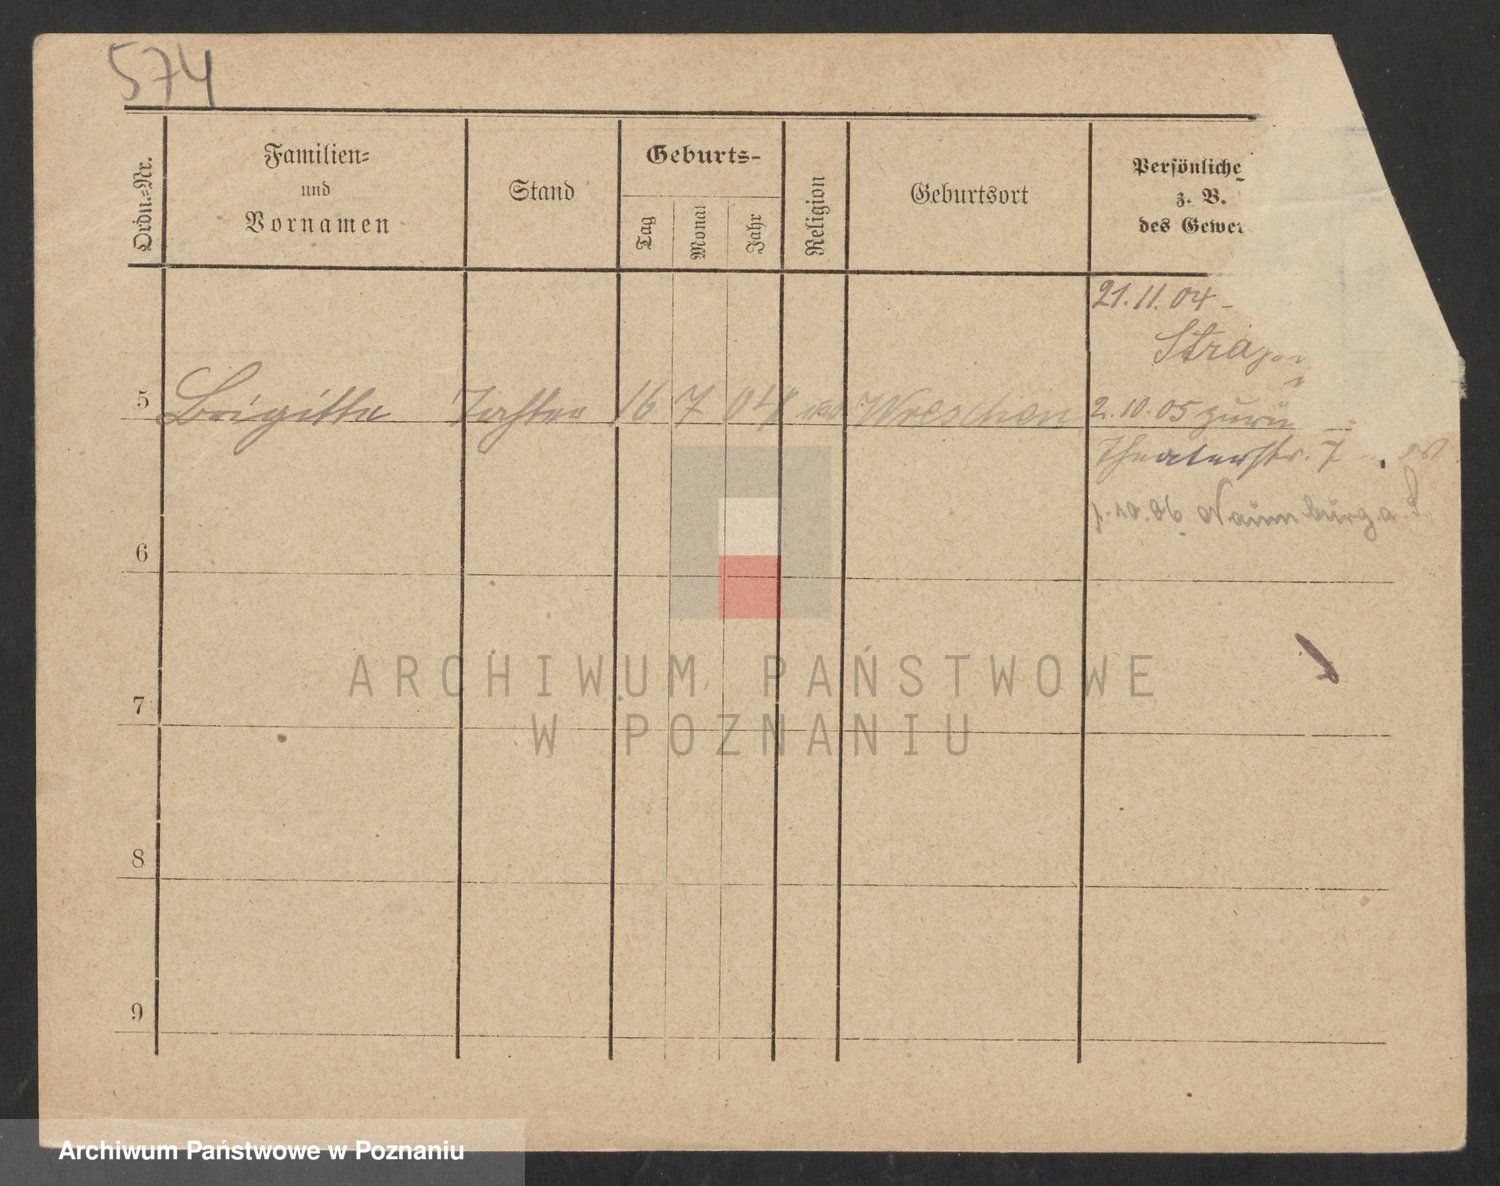 574
Ordn.-Nr.
Familien-
und
Vornamen
Stand
Geburts-
Tag
Monat
Jahr
Religion
Geburtsort
Persönliche
z. B.
des Gewer
21.11.04 -
5 Brigitte Tochter 16 7 04 Wreschen 2.10.05 zurü
Theaterstr. 7
1.10.06 Naumburg a. S.
6
7
8
9
ARCHIWUM PAŃSTWOWE
W POZNANIU
Archiwum Państwowe w Poznaniu